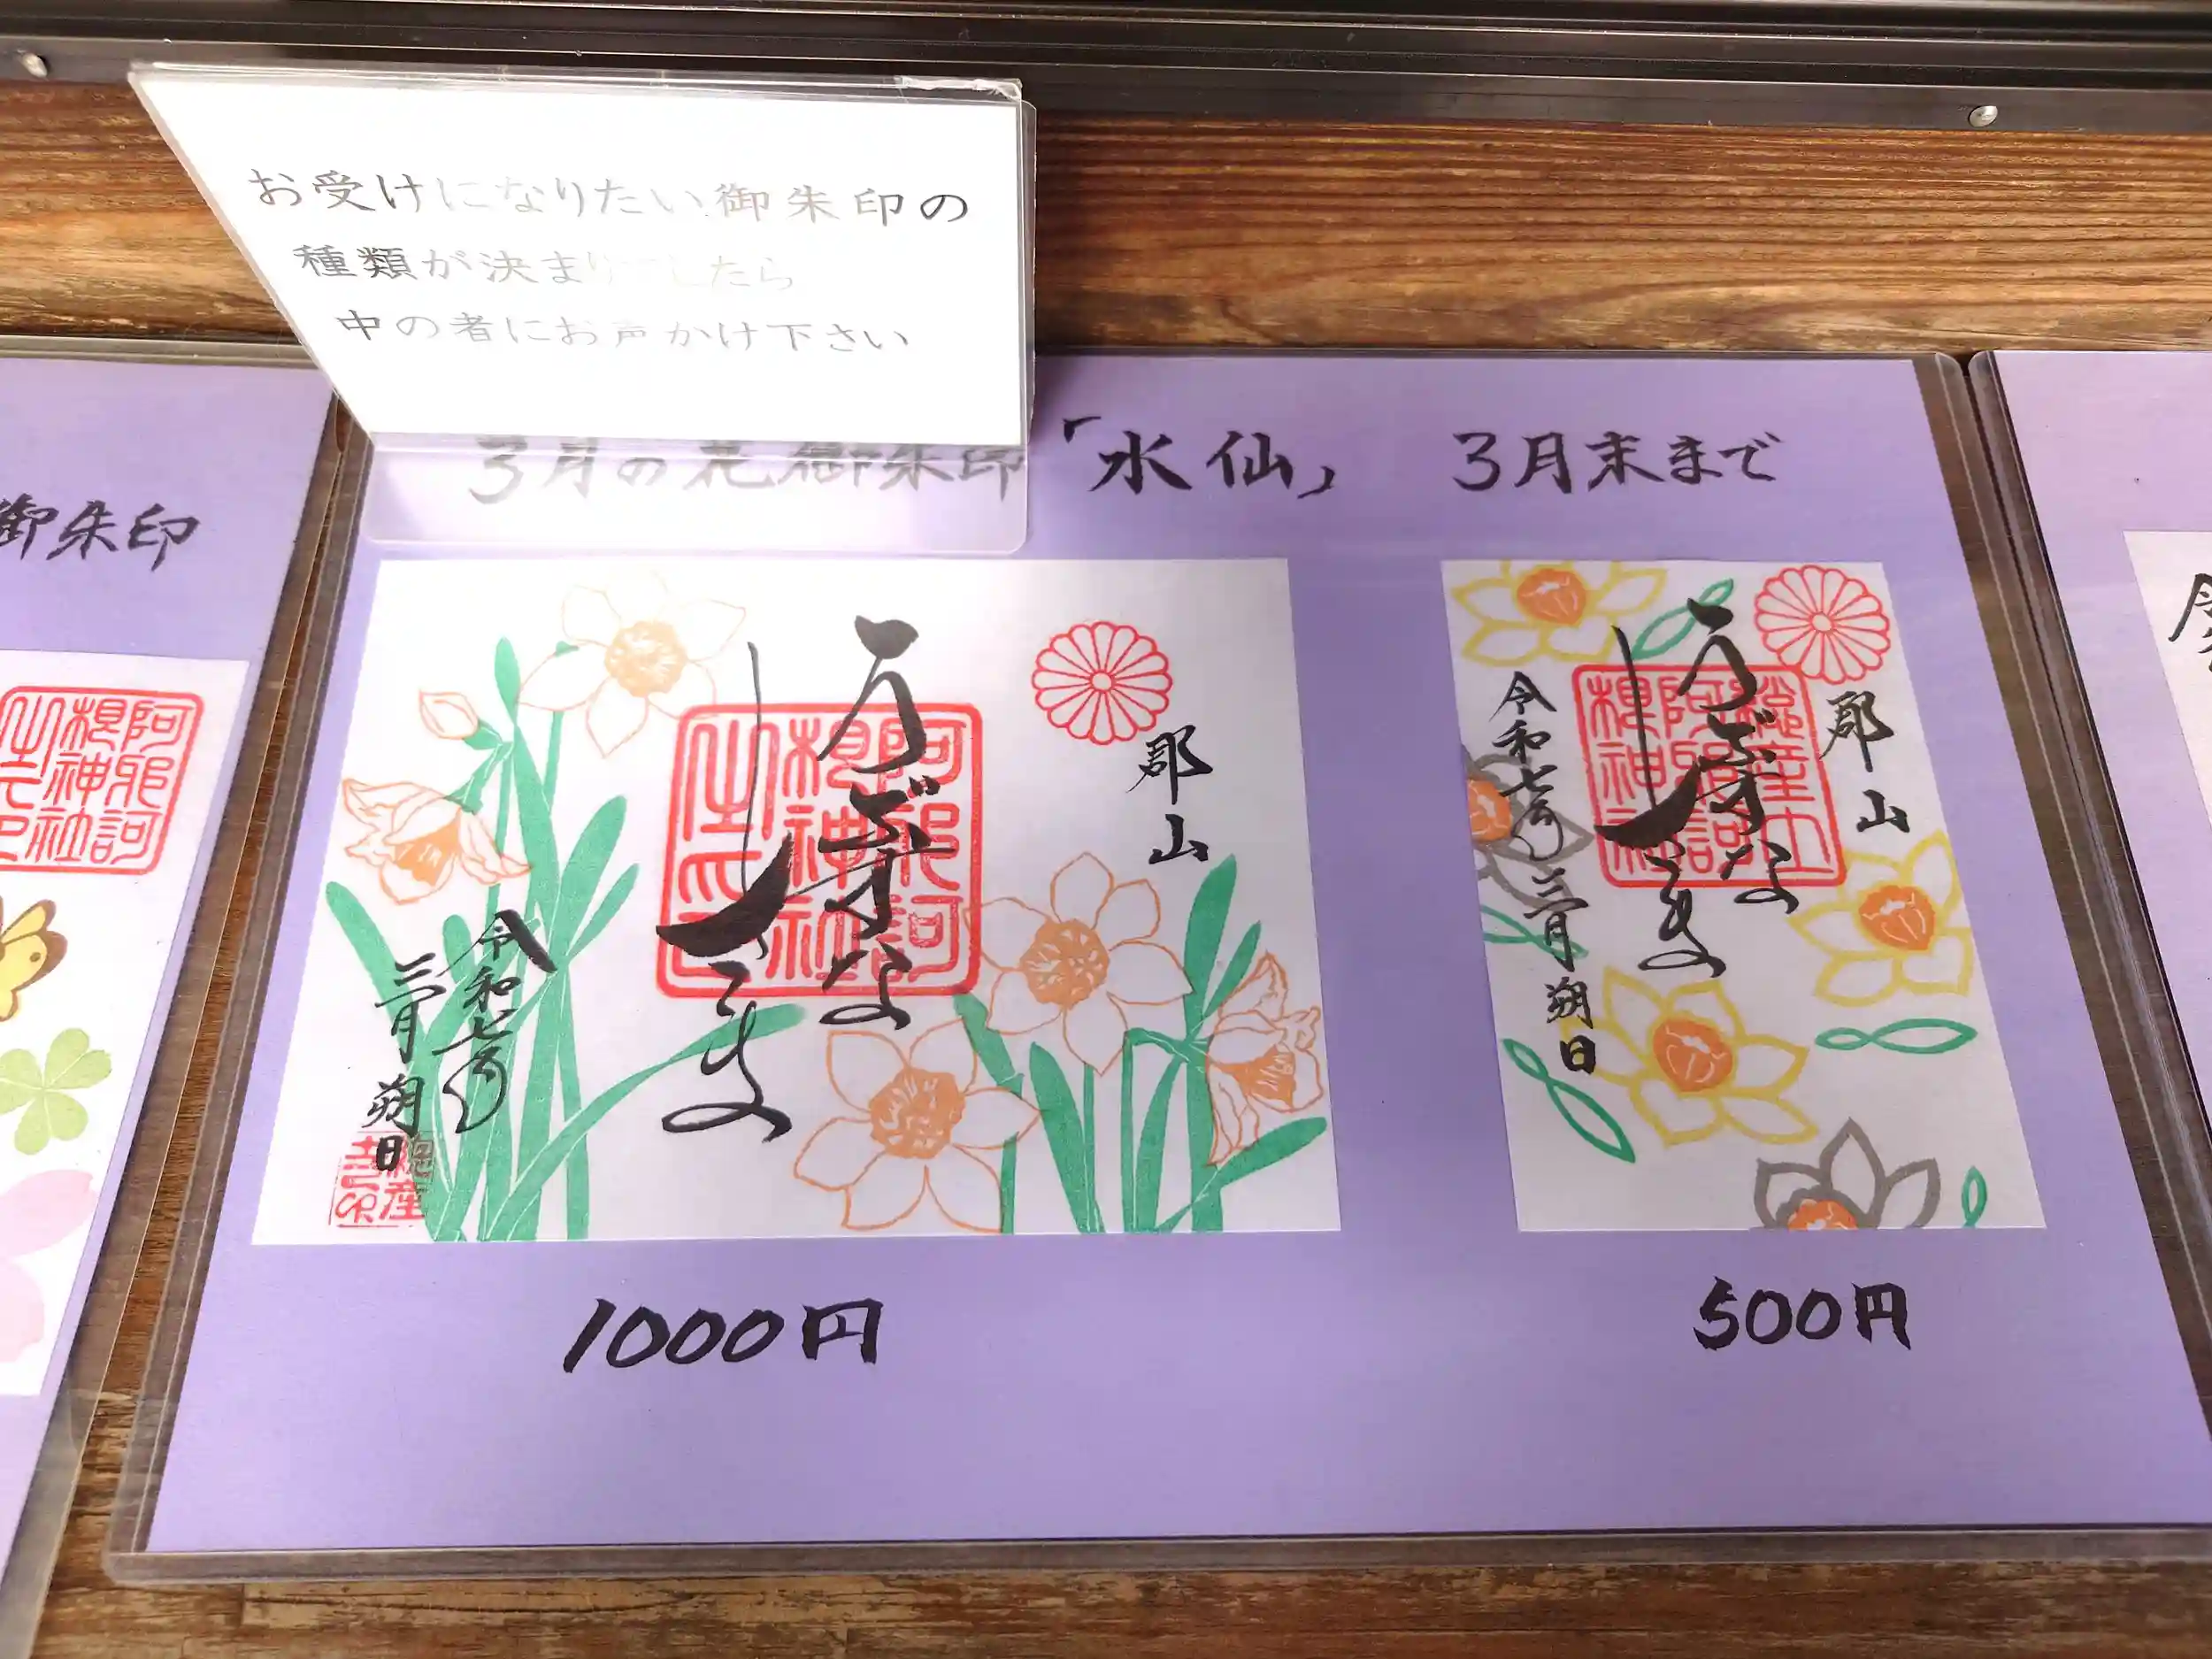 お受けになりたい御朱印の
種類が決まりましたら
中の者にお声かけ下さい
御朱印
3月の花御朱印「水仙」 3月末まで
阿邪訶
根神社
之印
郡山
うぶすな
さま
令和七年
三月朔日
総産
土印
阿邪訶
根神社
之印
郡山
うぶすな
さま
総産土
阿邪訶
根神社
令和七年三月朔日
1000円
500円
令